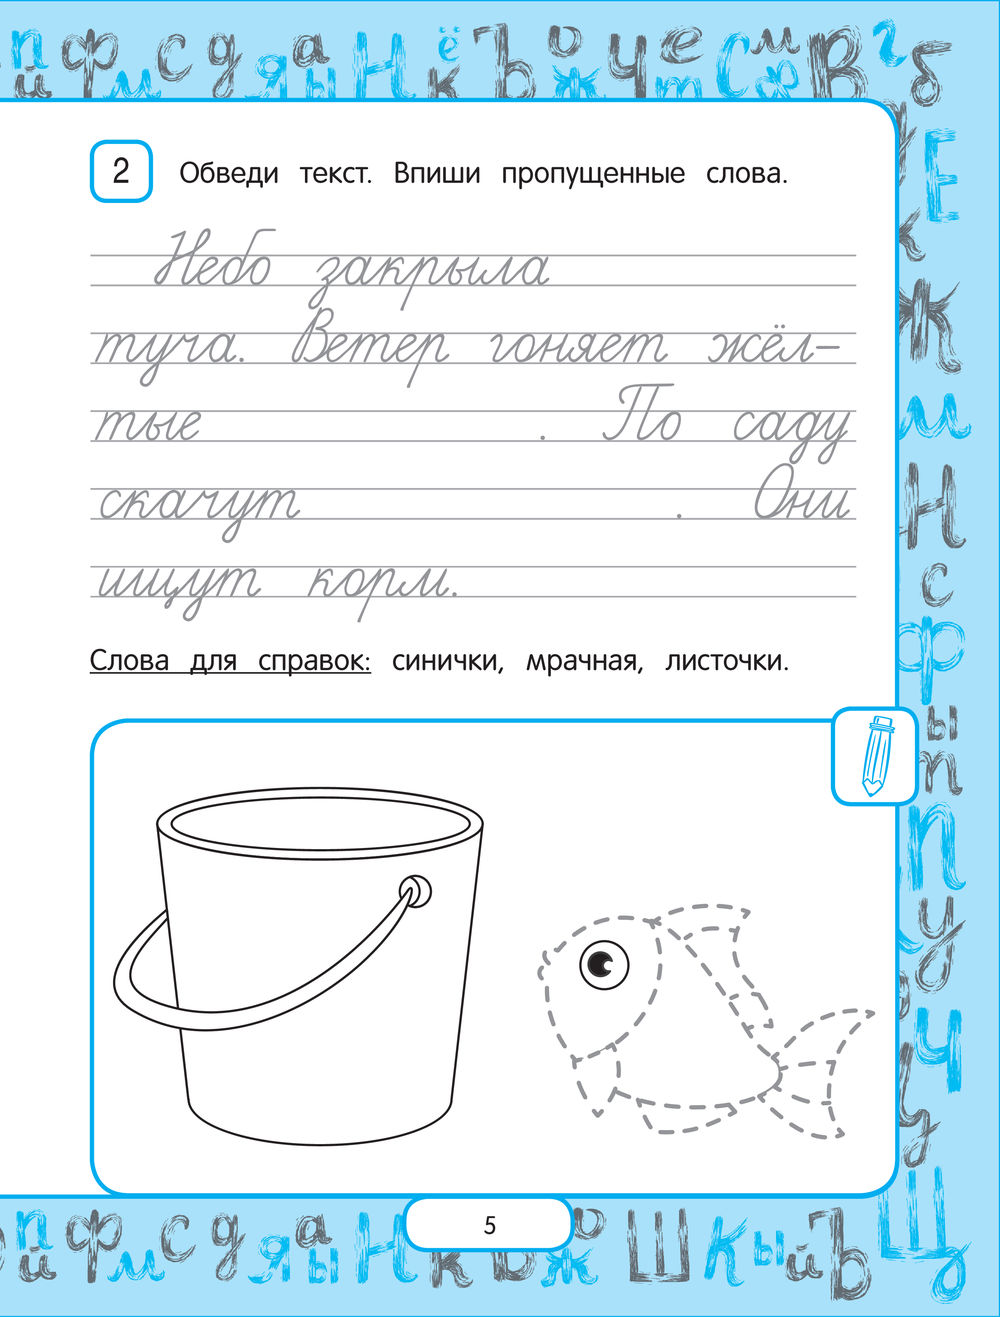 2 Обведи текст. Впиши пропущенные слова.
Небо закрыла
туча. Ветер гоняет жёл-
тые . По саду
скачут . Они
ищут корм.
Слова для справок: синички, мрачная, листочки.
5